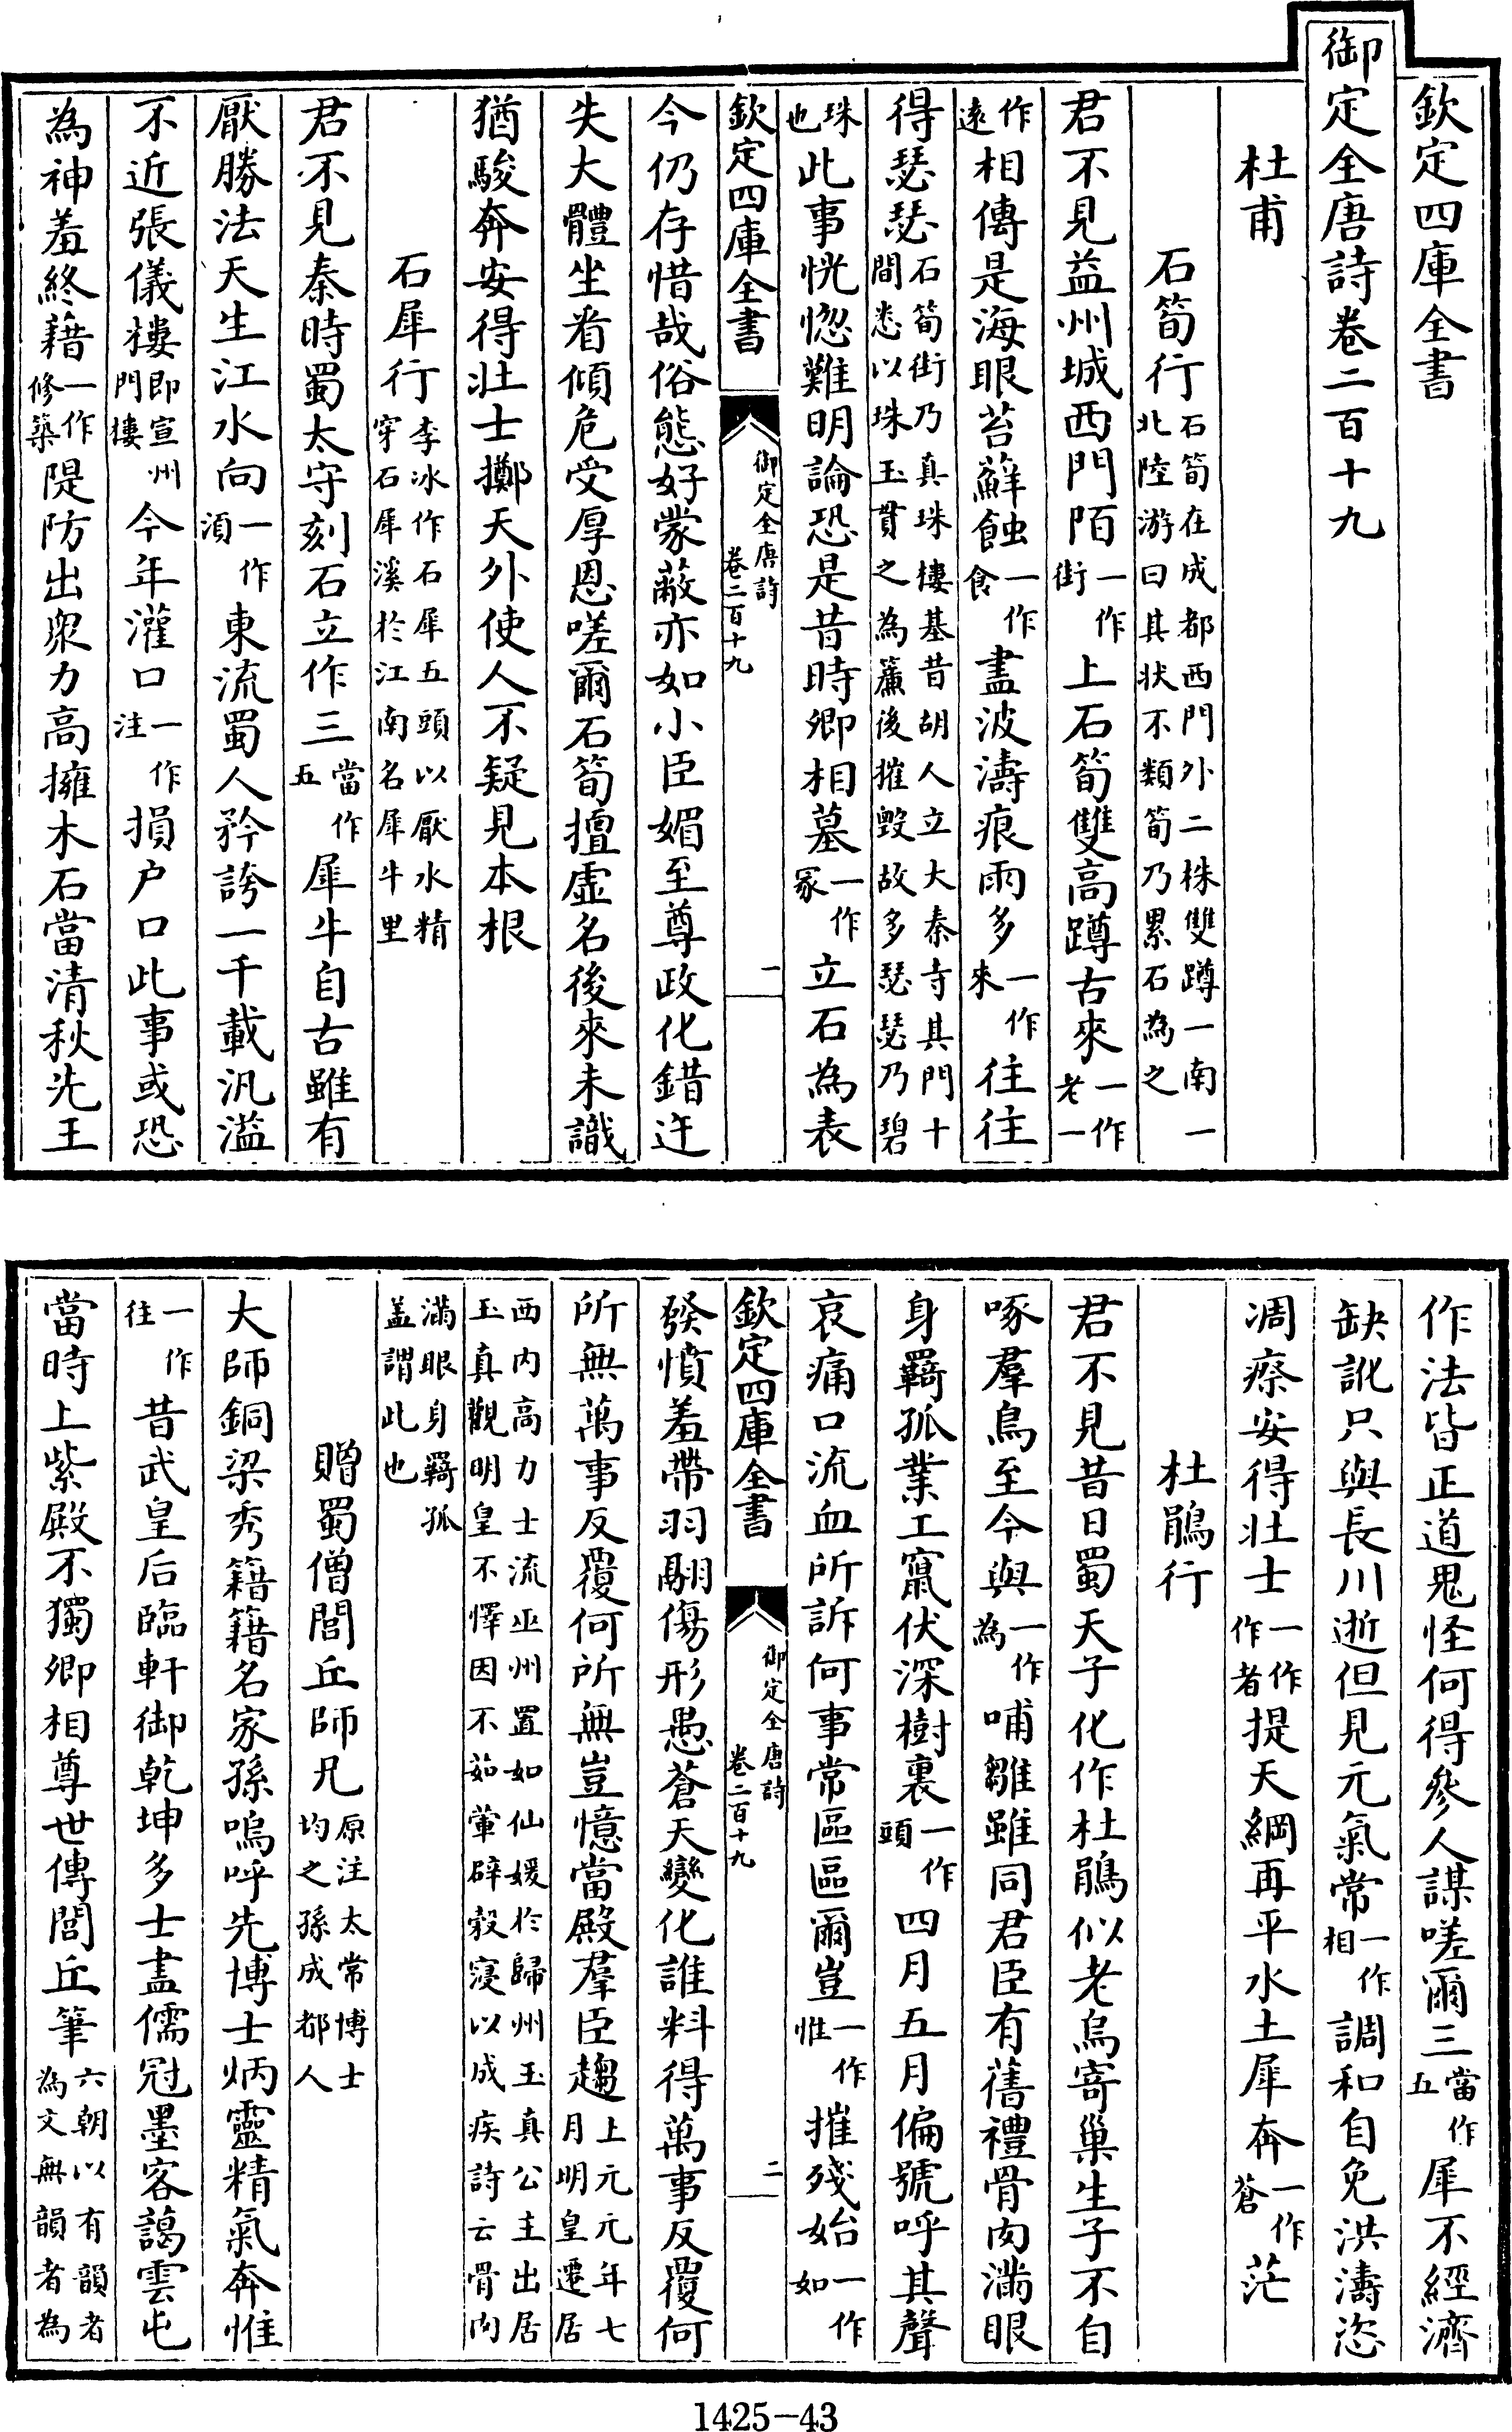 欽定四庫全書
御定全唐詩卷二百十九
杜甫
石筍行石筍在成都西門外二株雙蹲一南一北陸游曰其狀不類筍乃累石為之
君不見益州城西門陌一作街上石筍雙高蹲古來一作老一
作遠相傳是海眼苔蘚蝕一作食盡波濤痕雨多一作來往往
得瑟瑟石筍街乃真珠樓基昔胡人立大秦寺其門十間悉以珠玉貫之為簾後摧毀故多瑟瑟乃碧
珠也此事恍惚難明論恐是昔時卿相墓一作冢立石為表
欽定四庫全書 御定全唐詩卷二百十九 一
今仍存惜哉俗態好蒙蔽亦如小臣媚至尊政化錯迕
失大體坐看傾危受厚恩嗟爾石筍擅虛名後來未識
猶駿奔安得壯士擲天外使人不疑見本根
石犀行李冰作石犀五頭以厭水精穿石犀溪於江南名犀牛里
君不見秦時蜀太守刻石立作三當作五犀牛自古雖有
厭勝法天生江水向一作須東流蜀人矜誇一千載汎溢
不近張儀樓即宣州門樓今年灌口一作注損户口此事或恐
為神羞終藉一作修築隄防出眾力高擁木石當清秋先王
作法皆正道鬼怪何得參人謀嗟爾三當作五犀不經濟
缺訛只與長川逝但見元氣常一作相調和自免洪濤恣
凋瘵安得壯士一作作者提天綱再平水土犀奔一作蒼茫
杜鵑行
君不見昔日蜀天子化作杜鵑似老烏寄巢生子不自
啄羣鳥至今與一作為哺雛雖同君臣有舊禮骨肉滿眼
身羇孤業工竄伏深樹裏一作頭四月五月偏號呼其聲
哀痛口流血所訴何事常區區爾豈一作惟摧殘始一作如
欽定四庫全書 御定全唐詩卷二百十九 二
發憤羞帶羽翮傷形愚蒼天變化誰料得萬事反覆何
所無萬事反覆何所無豈憶當殿羣臣趨上元元年七月明皇遷居
西内高力士流巫州置如仙媛於歸州玉真公主出居玉真觀明皇不懌因不茹葷辟穀寖以成疾詩云骨肉
滿眼身羇孤盖謂此也
贈蜀僧閭丘師兄原注太常博士均之孫成都人
大師銅梁秀籍籍名家孫嗚呼先博士炳靈精氣奔惟
一作往昔武皇后臨軒御乾坤多士盡儒冠墨客藹雲屯
當時上紫殿不獨卿相尊世傳閭丘筆六朝以有韻者為文無韻者為
1425-43